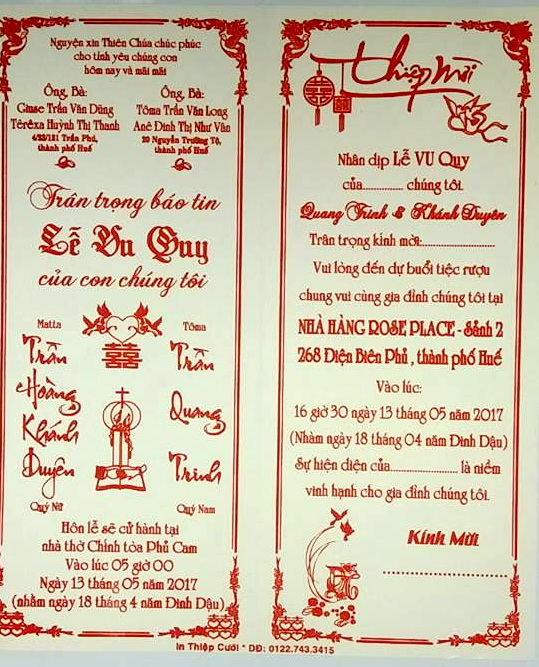 Nguyện xin Thiên Chúa chúc phúc
cho tình yêu chúng con
hôm nay và mãi mãi
Ông, Bà:
Giuse Trần Văn Dũng
Têrêxa Huỳnh Thị Thanh
4/23/131 Trần Phú,
thành phố Huế
Ông, Bà:
Tôma Trần Văn Long
Anê Đinh Thị Như Vân
20 Nguyễn Trường Tộ,
thành phố Huế
Trân trọng báo tin
Lễ Vu Quy
của con chúng tôi
Matta
Trần
Hoàng
Khánh
Duyên
Quý Nữ
囍
Tôma
Trần
Quang
Trinh
Quý Nam
Hôn lễ sẽ cử hành tại
nhà thờ Chính tòa Phủ Cam
Vào lúc 05 giờ 00
Ngày 13 tháng 05 năm 2017
(nhằm ngày 18 tháng 4 năm Đinh Dậu)
Thiệp Mời
囍
囍
Nhân dịp Lễ VU Quy
của............... chúng tôi.
Quang Trinh & Khánh Duyên
Trân trọng kính mời:..........................
Vui lòng đến dự buổi tiệc rượu
chung vui cùng gia đình chúng tôi tại
NHÀ HÀNG ROSE PLACE - Sảnh 2
268 Điện Biên Phủ , thành phố Huế
Vào lúc:
16 giờ 30 ngày 13 tháng 05 năm 2017
(Nhằm ngày 18 tháng 04 năm Đinh Dậu)
Sự hiện diện của........................ là niềm
vinh hạnh cho gia đình chúng tôi.
Kính Mời
........................................
In Thiệp Cưới * DĐ: 0122.743.3415